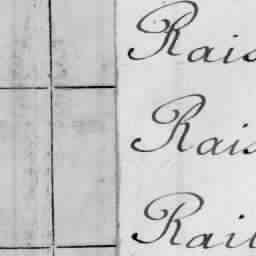 Rais
Rais
Rail